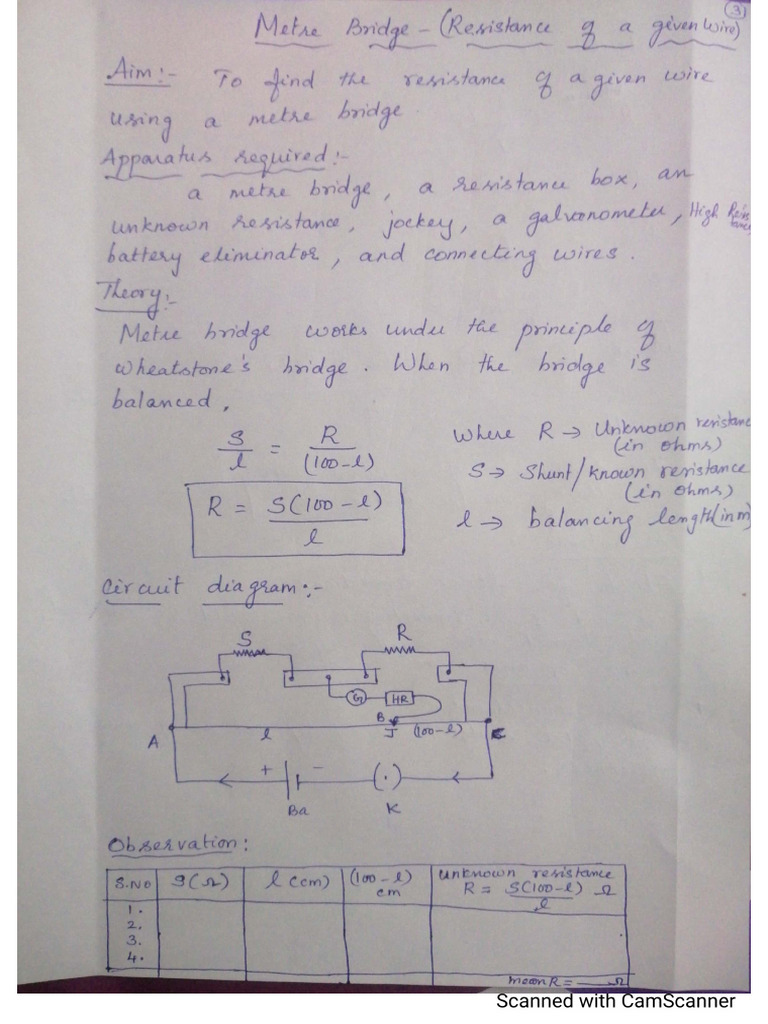 3
Metre Bridge - (Resistance of a given wire)
Aim:- To find the resistance of a given wire
using a metre bridge.
Apparatus required:-
a metre bridge, a resistance box, an
unknown resistance, jockey, a galvonometer, High Resis
tance,
battery eliminator, and connecting wires.
Theory:-
Metre bridge works under the principle of
wheatstone's bridge. When the bridge is
balanced,
S/l = R/(100-l)
where R → Unknown resistance
(in ohms)
S → Shunt/known resistance
(in ohms)
R = S(100-l)/l
l → balancing length (in m)
Circuit diagram:-
S R
G HR
B
A l J (100-l)
+ -
Ba K
Observation:
S.NO S(Ω) l (cm) (100-l) cm unknown resistance R = S(100-l)/l Ω
1.
2.
3.
4.
mean R = ___ Ω
Scanned with CamScanner